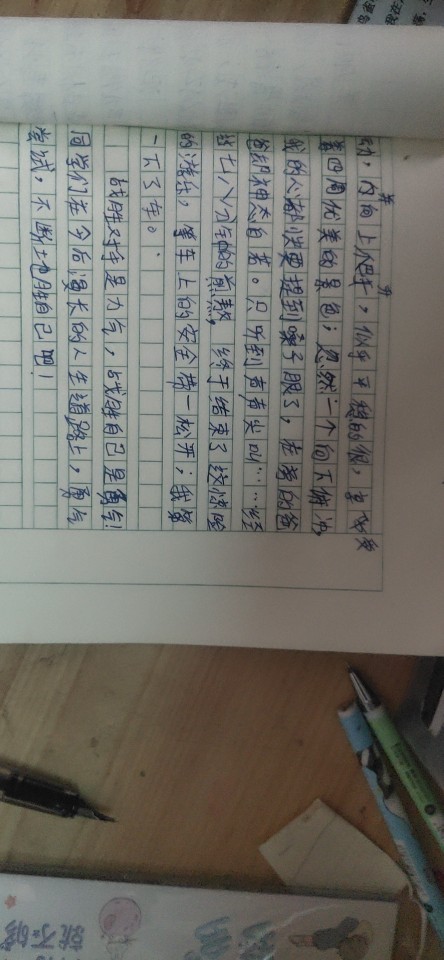 动,向上爬去,似乎平稳的很,
着四周优美的景色;忽然一个向下俯冲
我的心都快要提到嗓子眼了,在旁的爸
爸却神态自若。只听到声声尖叫……经
过七八分钟的煎熬,终于结束了这惊险
的游乐,等车上的安全带一松开;我第
一下了车。
战胜对手是力气,战胜自己是勇气!
同学们在今后漫长的人生道路上,勇气
尝试,不断战胜自己吧!
就不够